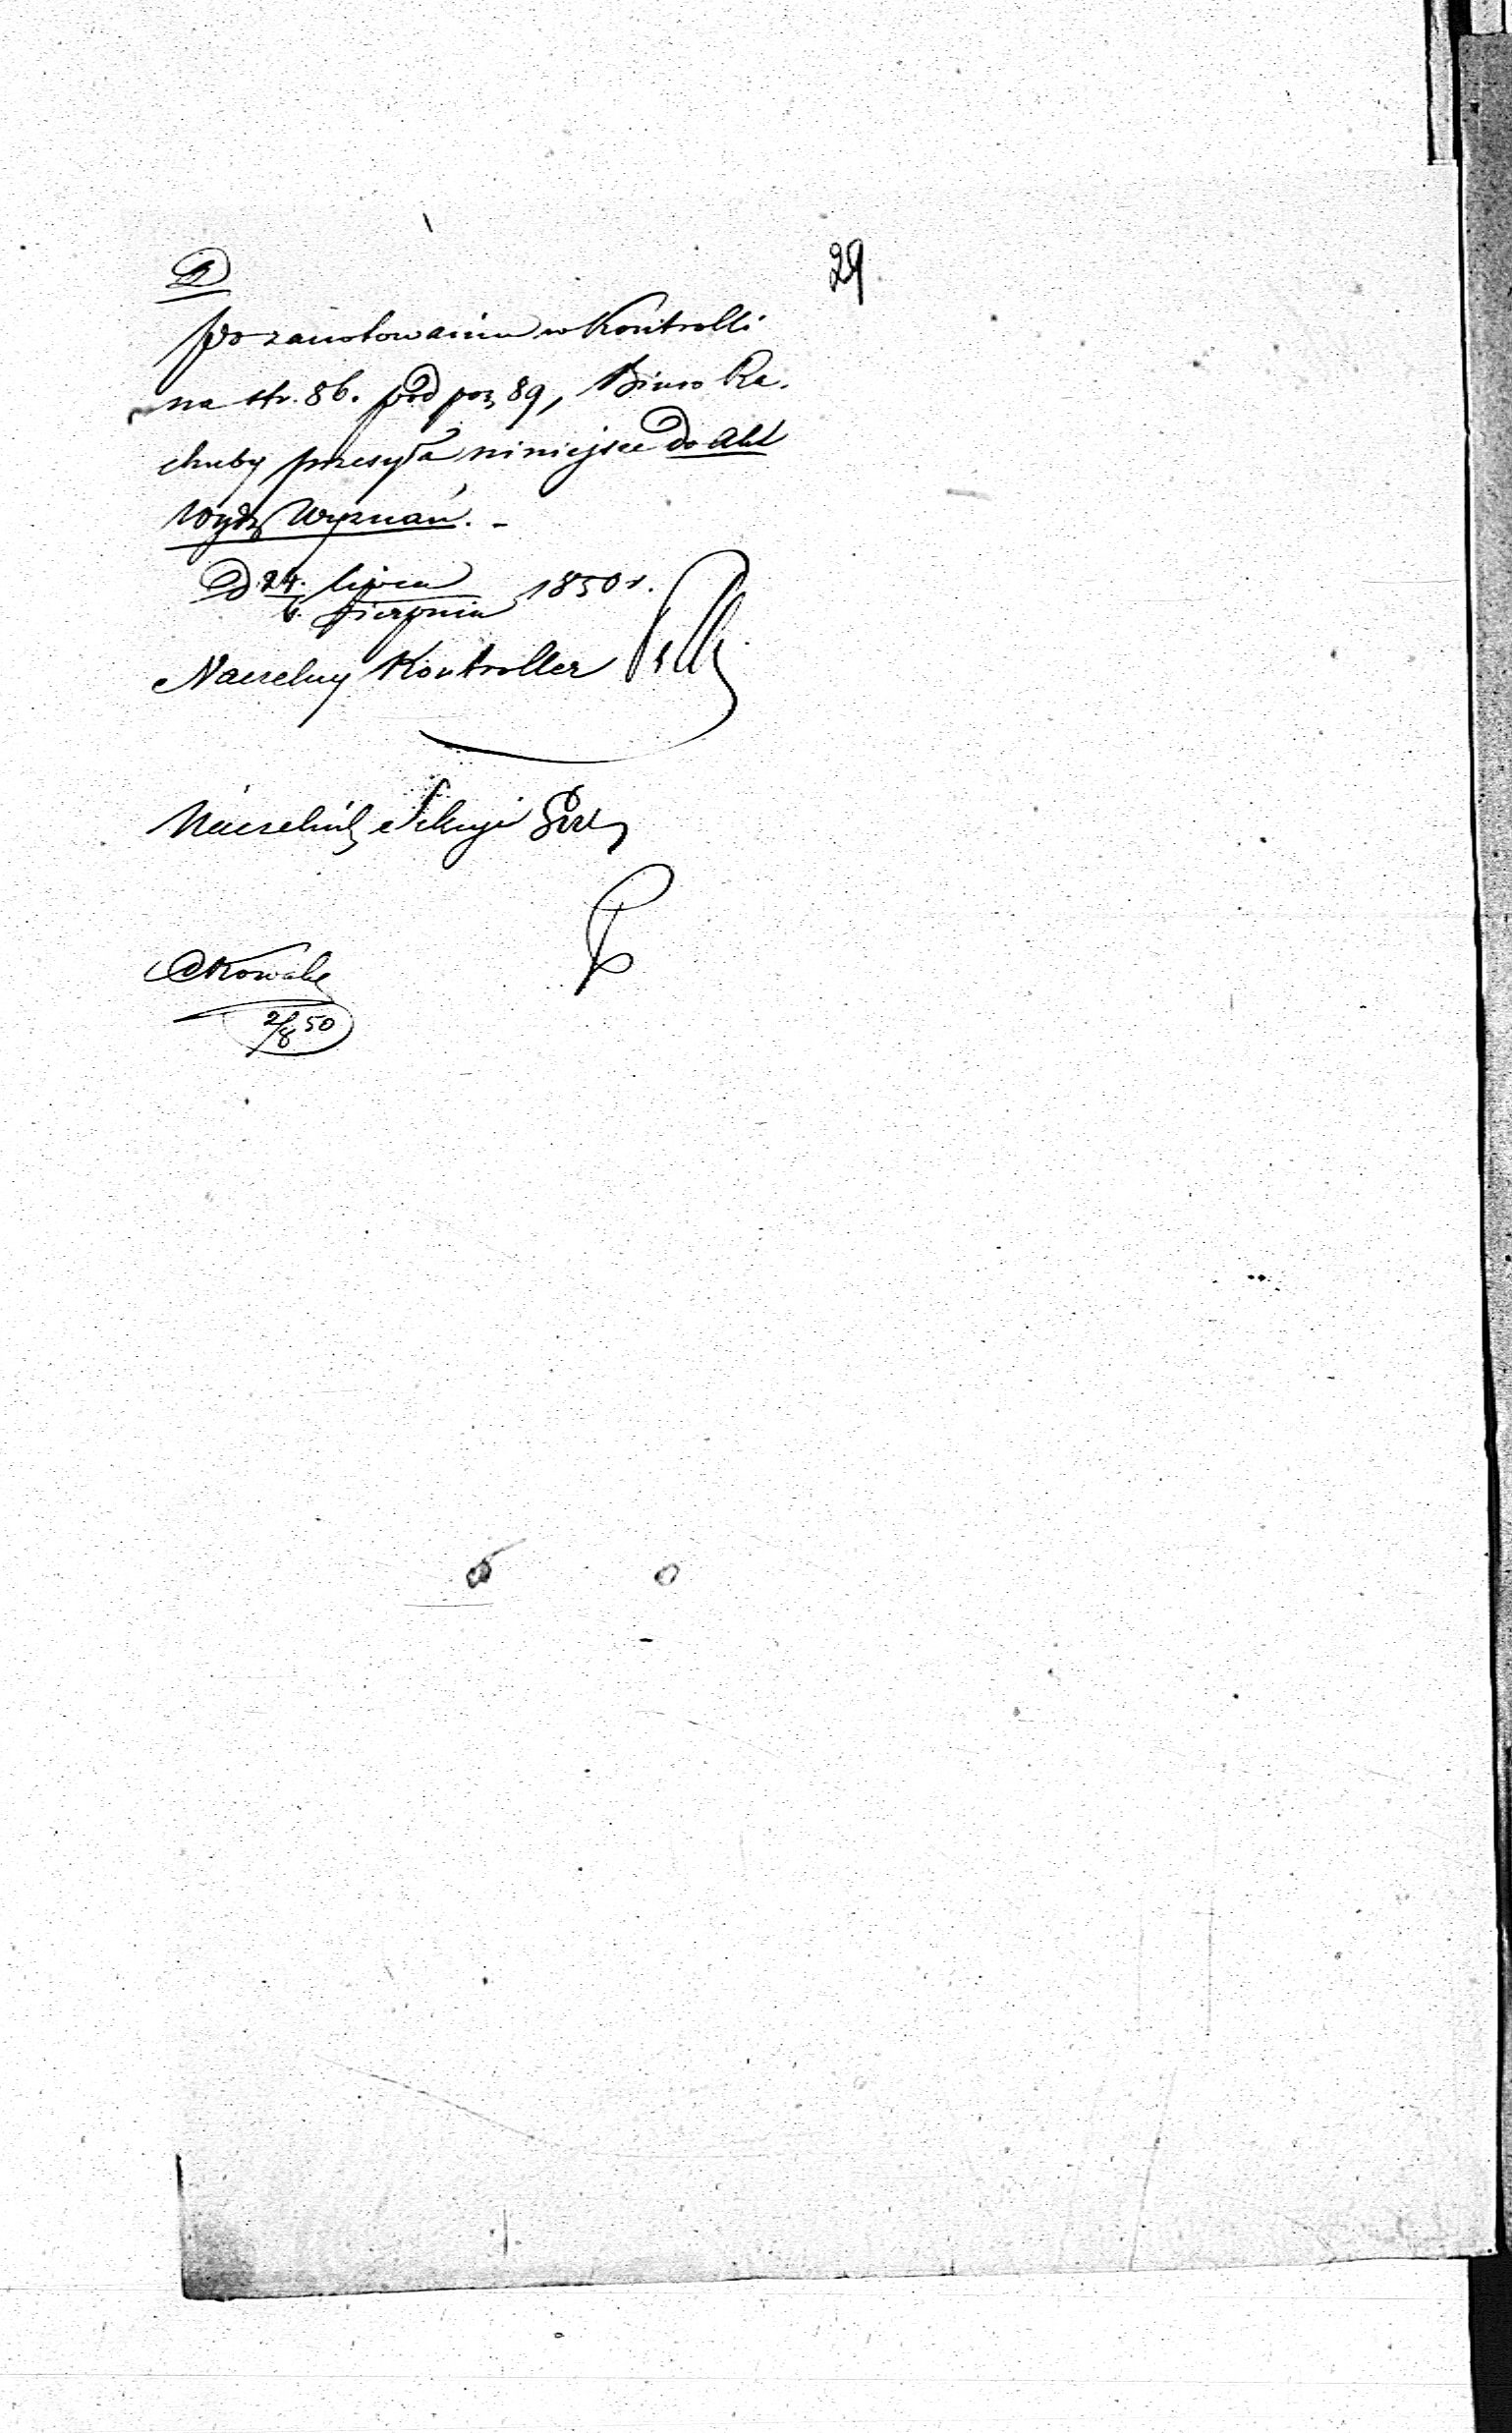 29
Po zanotowaniu w Kontrolli
na str. 86. pod poz 89, Biuro Ra-
chuby przesyła niniejsze do Akt
Wydz Wyznań. -
D. 24. Lipca 1850 r.
Sierpnia
Naczelny Kontroller
Naczelnik Sekcyi
2/8 50